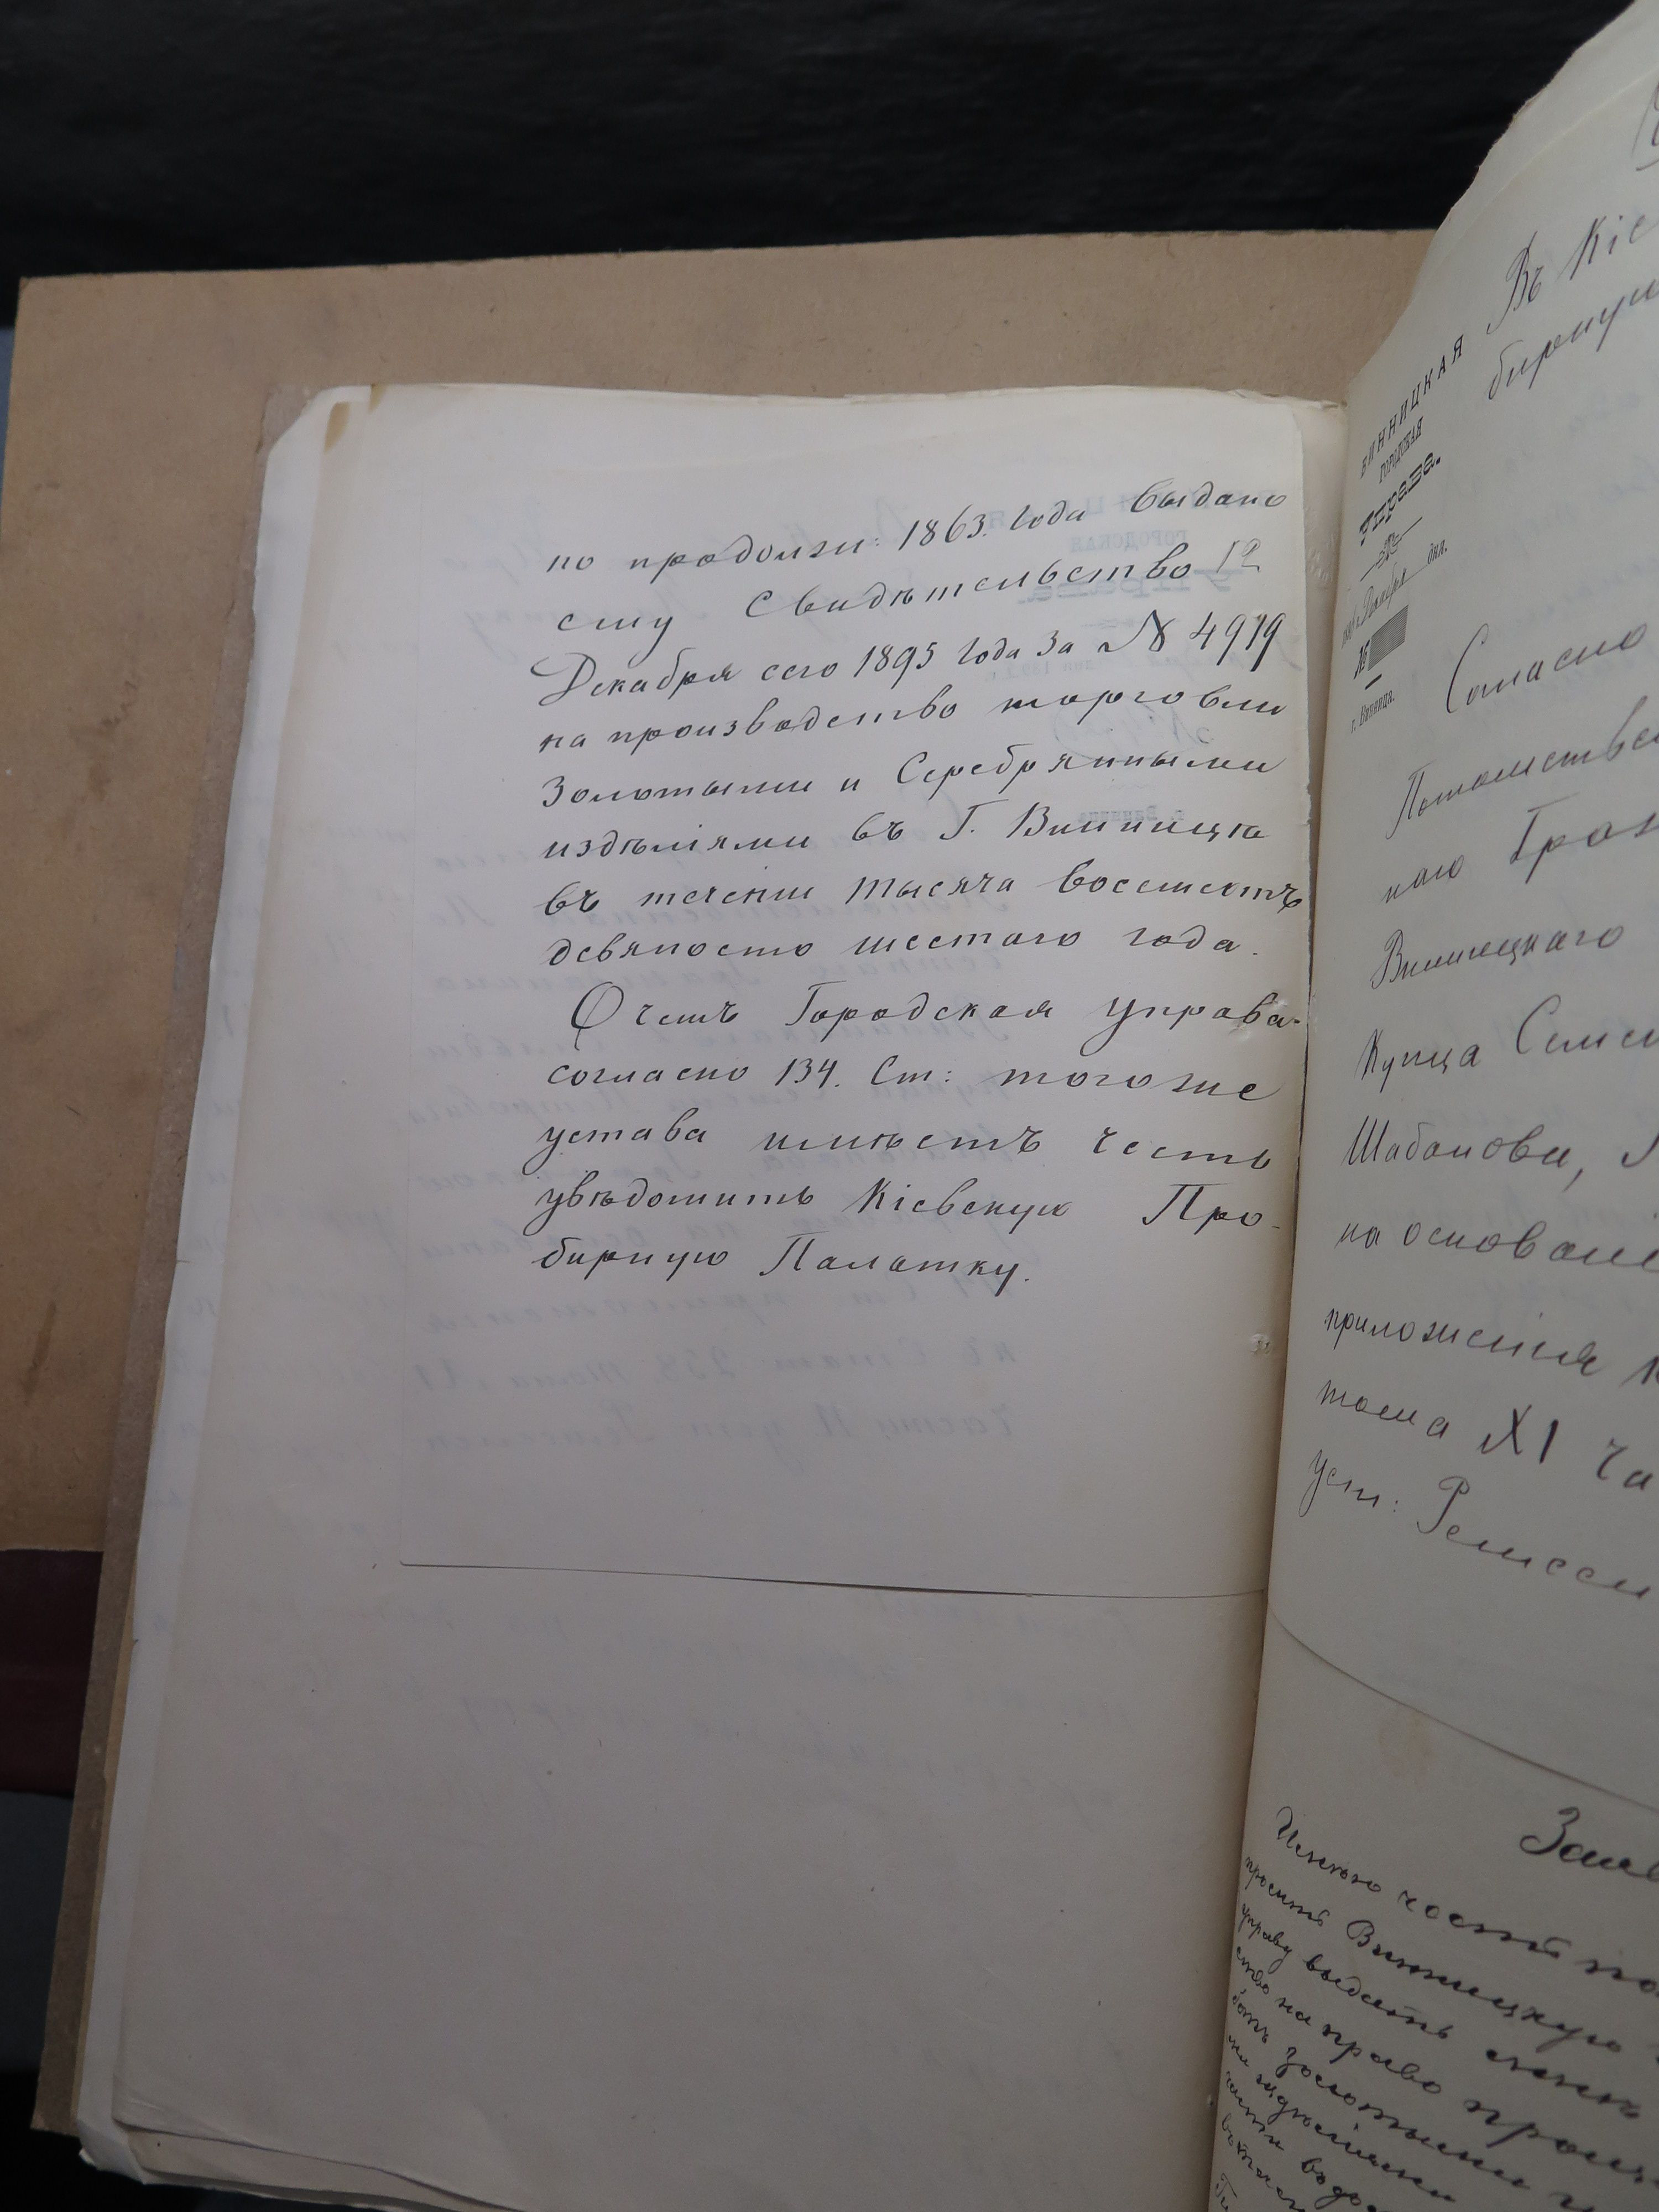 по продолжи: 1863. года выдано
ему Свидѣтельство 12
Декабря сего 1895 года за № 4979
на производство торговли
Золотыми и Серебрянными
издѣліями въ Г. Винницѣ
въ теченіи тысяча восемьсотъ
девяносто шестаго года.
О чемъ Городская Управа
согласно 134. Ст: тогоже
устава имѣетъ честь
увѣдомить Кіевскую Про-
бирную Палатку.
Въ Кіе
бирную
ВИННИЦКАЯ
ГОРОДСКАЯ
Управа.
Декабря дня.
№
г. Винница.
Согласно
Потомствен
наго Граж
Винницкаго
Купца Семен
Шабанова,
на основані
приложенія к
тома XI ча
уст: Ремесл
Заяв
Имѣю честь по
просить Винницкую
управу выдать
ство на право произ
золотыми и